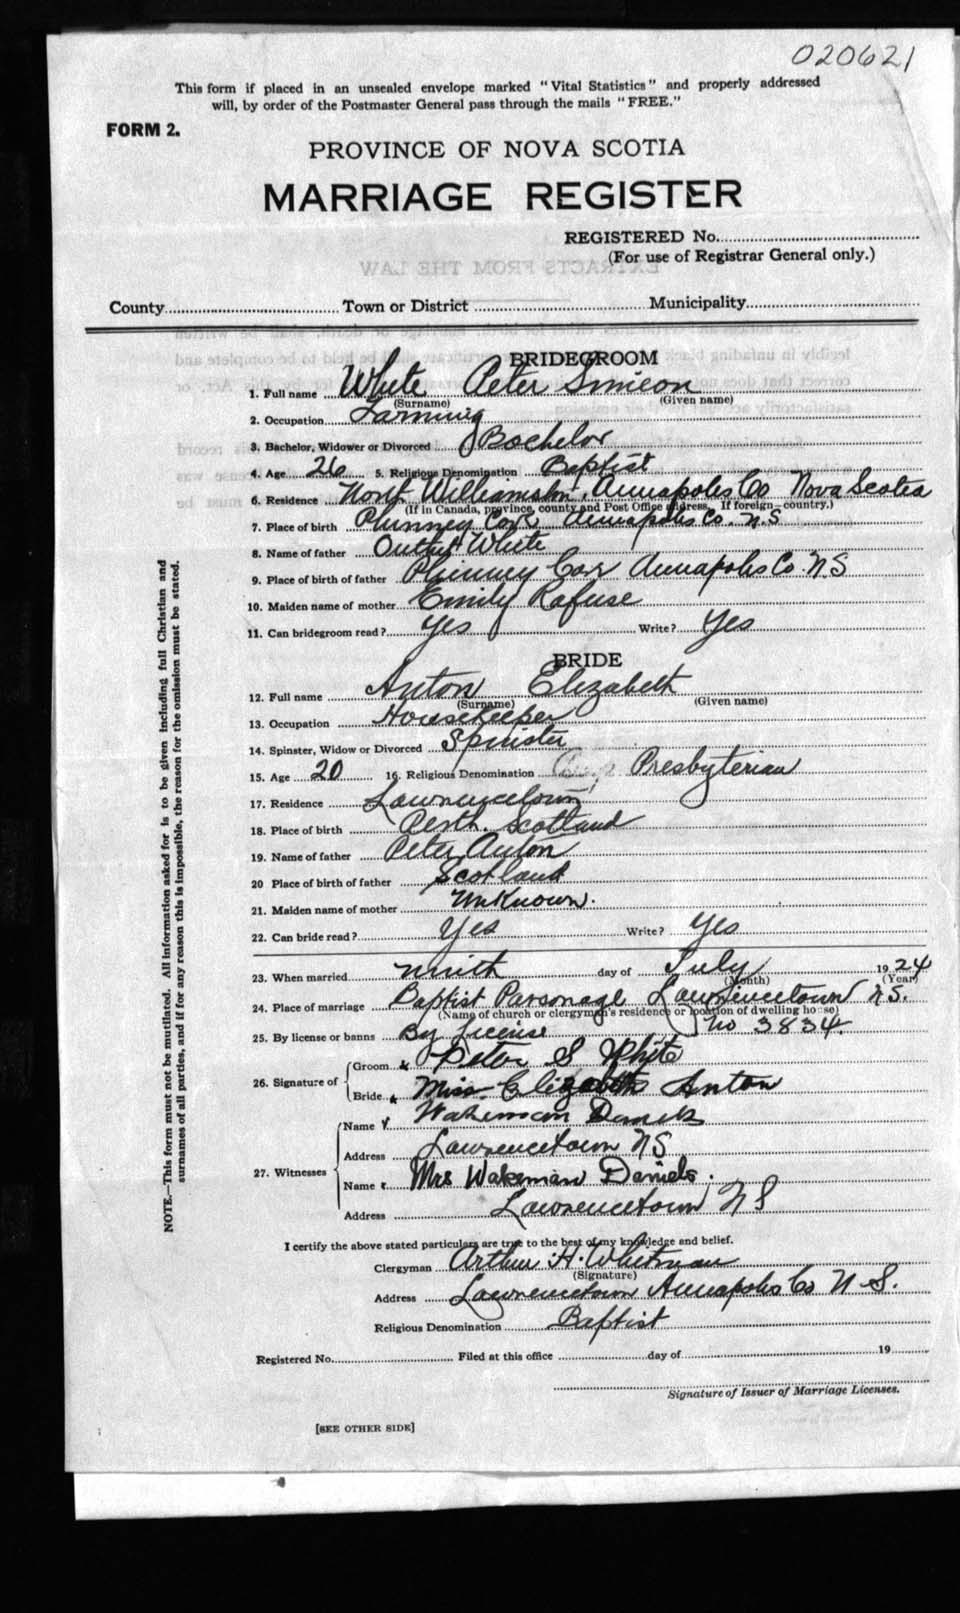 020621
This form if placed in an unsealed envelope marked "Vital Statistics" and properly addressed
will, by order of the Postmaster General pass through the mails "FREE."
FORM 2.
PROVINCE OF NOVA SCOTIA
MARRIAGE REGISTER
REGISTERED No.
(For use of Registrar General only.)
County Town or District Municipality
BRIDEGROOM
1. Full name White Peter Simeon
(Surname) (Given name)
2. Occupation Farming
3. Bachelor, Widower or Divorced Bachelor
4. Age 26 5. Religious Denomination Baptist
6. Residence Williamston, Annapolis Co Nova Scotia
(If in Canada, province, county and Post Office address. If foreign—country.)
7. Place of birth Phinney Annapolis Co. N.S
8. Name of father White
9. Place of birth of father Phinney Annapolis Co. N.S
10. Maiden name of mother Emily Rafuse
11. Can bridegroom read? Yes Write? Yes
BRIDE
12. Full name Anton Elizabeth
(Surname) (Given name)
13. Occupation Housekeeper
14. Spinster, Widow or Divorced Spinster
15. Age 20 16. Religious Denomination Presbyterian
17. Residence Lawrencetown
18. Place of birth Perth. Scotland
19. Name of father Peter Anton
20 Place of birth of father Scotland
21. Maiden name of mother Unknown.
22. Can bride read? Yes Write? Yes
23. When married ninth day of July 1924
(Month) (Year)
24. Place of marriage Baptist Parsonage Lawrencetown N.S.
(Name of church or clergyman's residence or location of dwelling house)
25. By license or banns By License No 3834.
26. Signature of Groom x Peter S White
Bride x Miss. Elizabeth Anton
27. Witnesses Name Wakeman Daniels
Address Lawrencetown NS
Name Mrs Wakeman Daniels.
Address Lawrencetown N S
I certify the above stated particulars are true to the best of my knowledge and belief.
Clergyman Arthur H. Whitman
(Signature)
Address Lawrencetown Annapolis Co N.S.
Religious Denomination Baptist
Registered No. Filed at this office day of 19
Signature of Issuer of Marriage Licenses.
[SEE OTHER SIDE]
NOTE.—This form must not be mutilated. All information asked for is to be given including full Christian and
surnames of all parties, and if for any reason this is impossible, the reason for the omission must be stated.